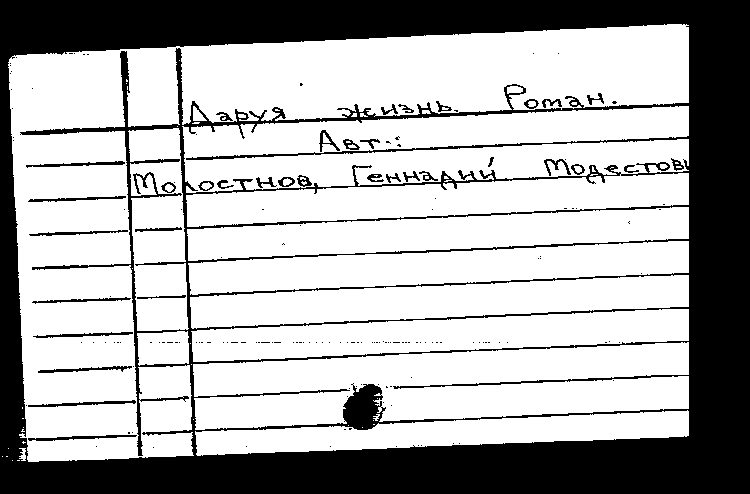 Даруя жизнь. Роман.
Авт.:
Молостнов, Геннадий Модестови